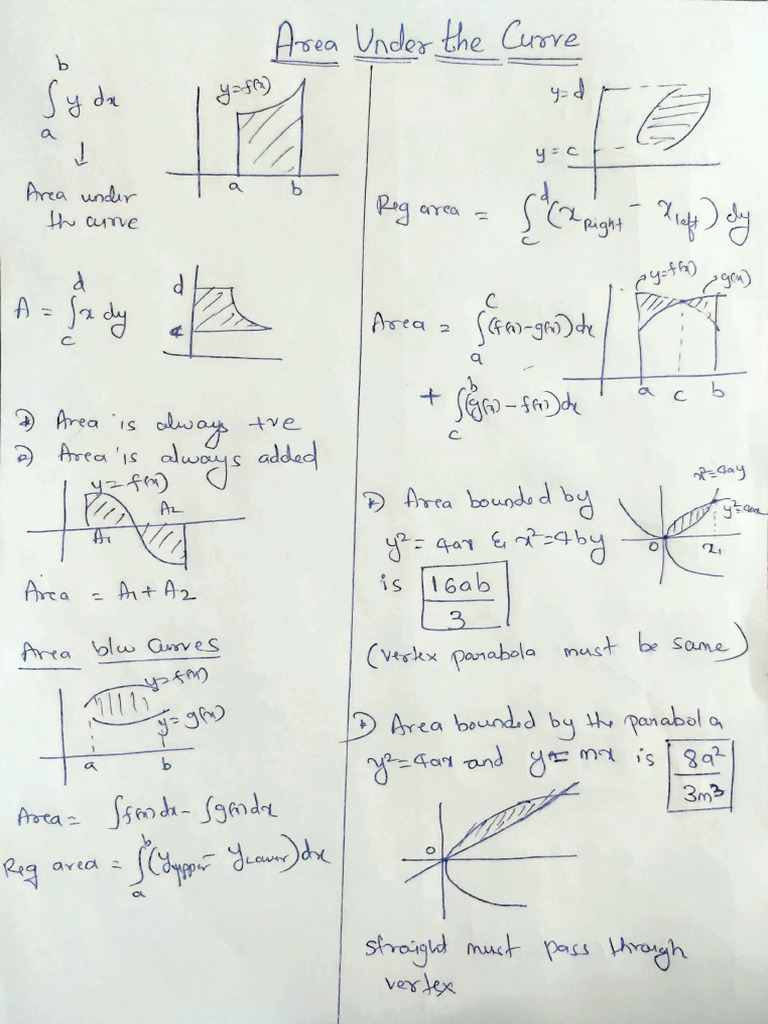 Area Under the Curve
b
∫ y dx
a
↓
Area under
the curve
y=f(x)
a b
d
A = ∫ x dy
c
d
c
*) Area is always +ve
*) Area is always added
y=f(x)
A1 A2
Area = A1 + A2
Area b/w Curves
y=f(x)
y=g(x)
a b
Area = ∫f(x)dx - ∫g(x)dx
b
Reg area = ∫(yupper - yLower)dx
a
y=d
y=c
d
Reg area = ∫(xRight - xleft) dy
c
y=f(x) g(x)
c
Area = ∫(f(x)-g(x))dx
a
b
+ ∫(g(x)-f(x))dx
c
a c b
*) Area bounded by
y²=4ax & x²=4by
is 16ab
3
x²=4ay
y²=4ax
0 x1
(vertex parabola must be same)
*) Area bounded by the parabola
y²=4ax and y=mx is 8a²
3m³
0
straight must pass through
vertex